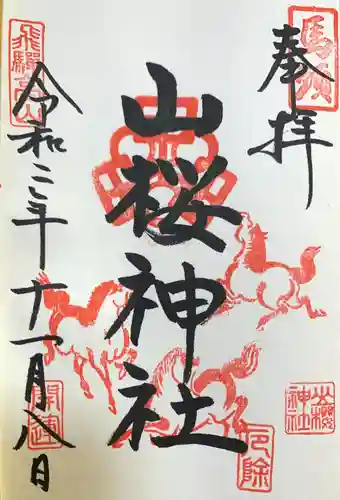 奉拝
馬頭
山桜神社
令和二年十一月八日
飛騨高山
開運
厄除
山櫻神社